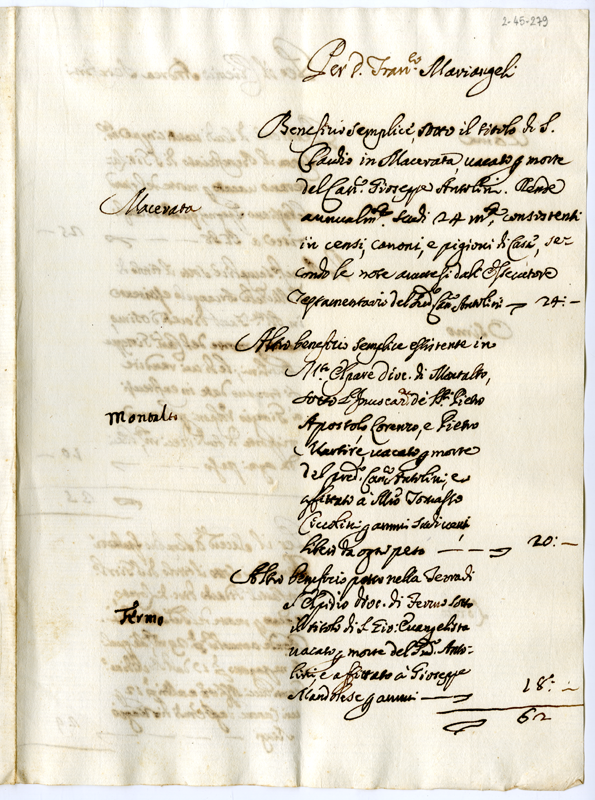 2-45-279
Per D. Fran.co Mariangeli
Beneficio semplice, sotto il titolo di S.
Claudio in Macerata, vacato q morte
del Can.co Gioseppe Antolini. Rende
Macerata
annualm.te Scudi 24 m.ta, consistenti
in censi, canoni, e pigioni di Case, se-
condo le note avutesi dall' Esecutore
Testamentario del Can.co Antolini 24:—
Altro beneficio semplice esistente in
M.te Elpare Dioc. di Montalto,
sotto de SS. Pietro
Montalto
Apostolo, Lorenzo, e Pietro
Martire, vacato q morte
del pred.o Can.co Antolini, e
affittato à Tomasso
Ciccolini q annui scudi venti
libero da ogni peso — — 20:—
Altro beneficio posto nella Terra di
S. Elpidio dioc. di Fermo sotto
Fermo
il titolo di S. Gio: Evangelista
vacato q morte del Anto-
lini, e affittato à Gioseppe
Mandolese q annui — 18:—
62